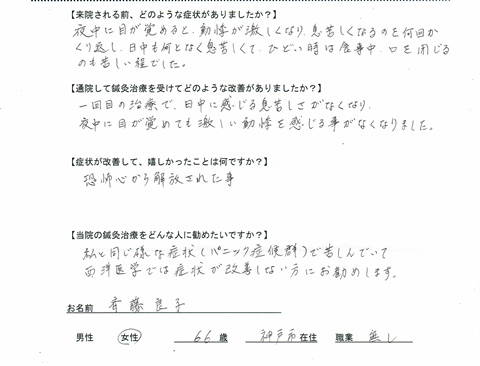 【来院される前、どのような症状がありましたか？】
夜中に目が覚めると、動悸が激しくなり、息苦しくなるのを何回か
くり返し、日中も何となく息苦しくて、ひどい時は食事中、口を閉じる
のも苦しい程でした。
【通院して鍼灸治療を受けてどのような改善がありましたか？】
一回目の治療で、日中に感じる息苦しさがなくなり、
夜中に目が覚めても激しい動悸を感じる事がなくなりました。
【症状が改善して、嬉しかったことは何ですか？】
恐怖心から解放された事
【当院の鍼灸治療をどんな人に勧めたいですか？】
私と同じ様な症状（パニック症候群）で苦しんでいて
西洋医学では症状が改善しない方にお勧めします。
お名前 斉藤 良子
男性 女性 66 歳 神戸市 在住 職業 無し